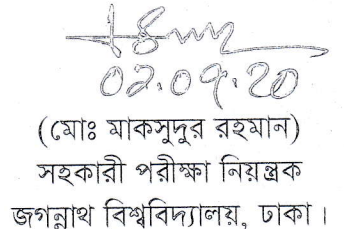 02.09.20
(মোঃ মাকসুদুর রহমান)
সহকারী পরীক্ষা নিয়ন্ত্রক
জগন্নাথ বিশ্ববিদ্যালয়, ঢাকা।